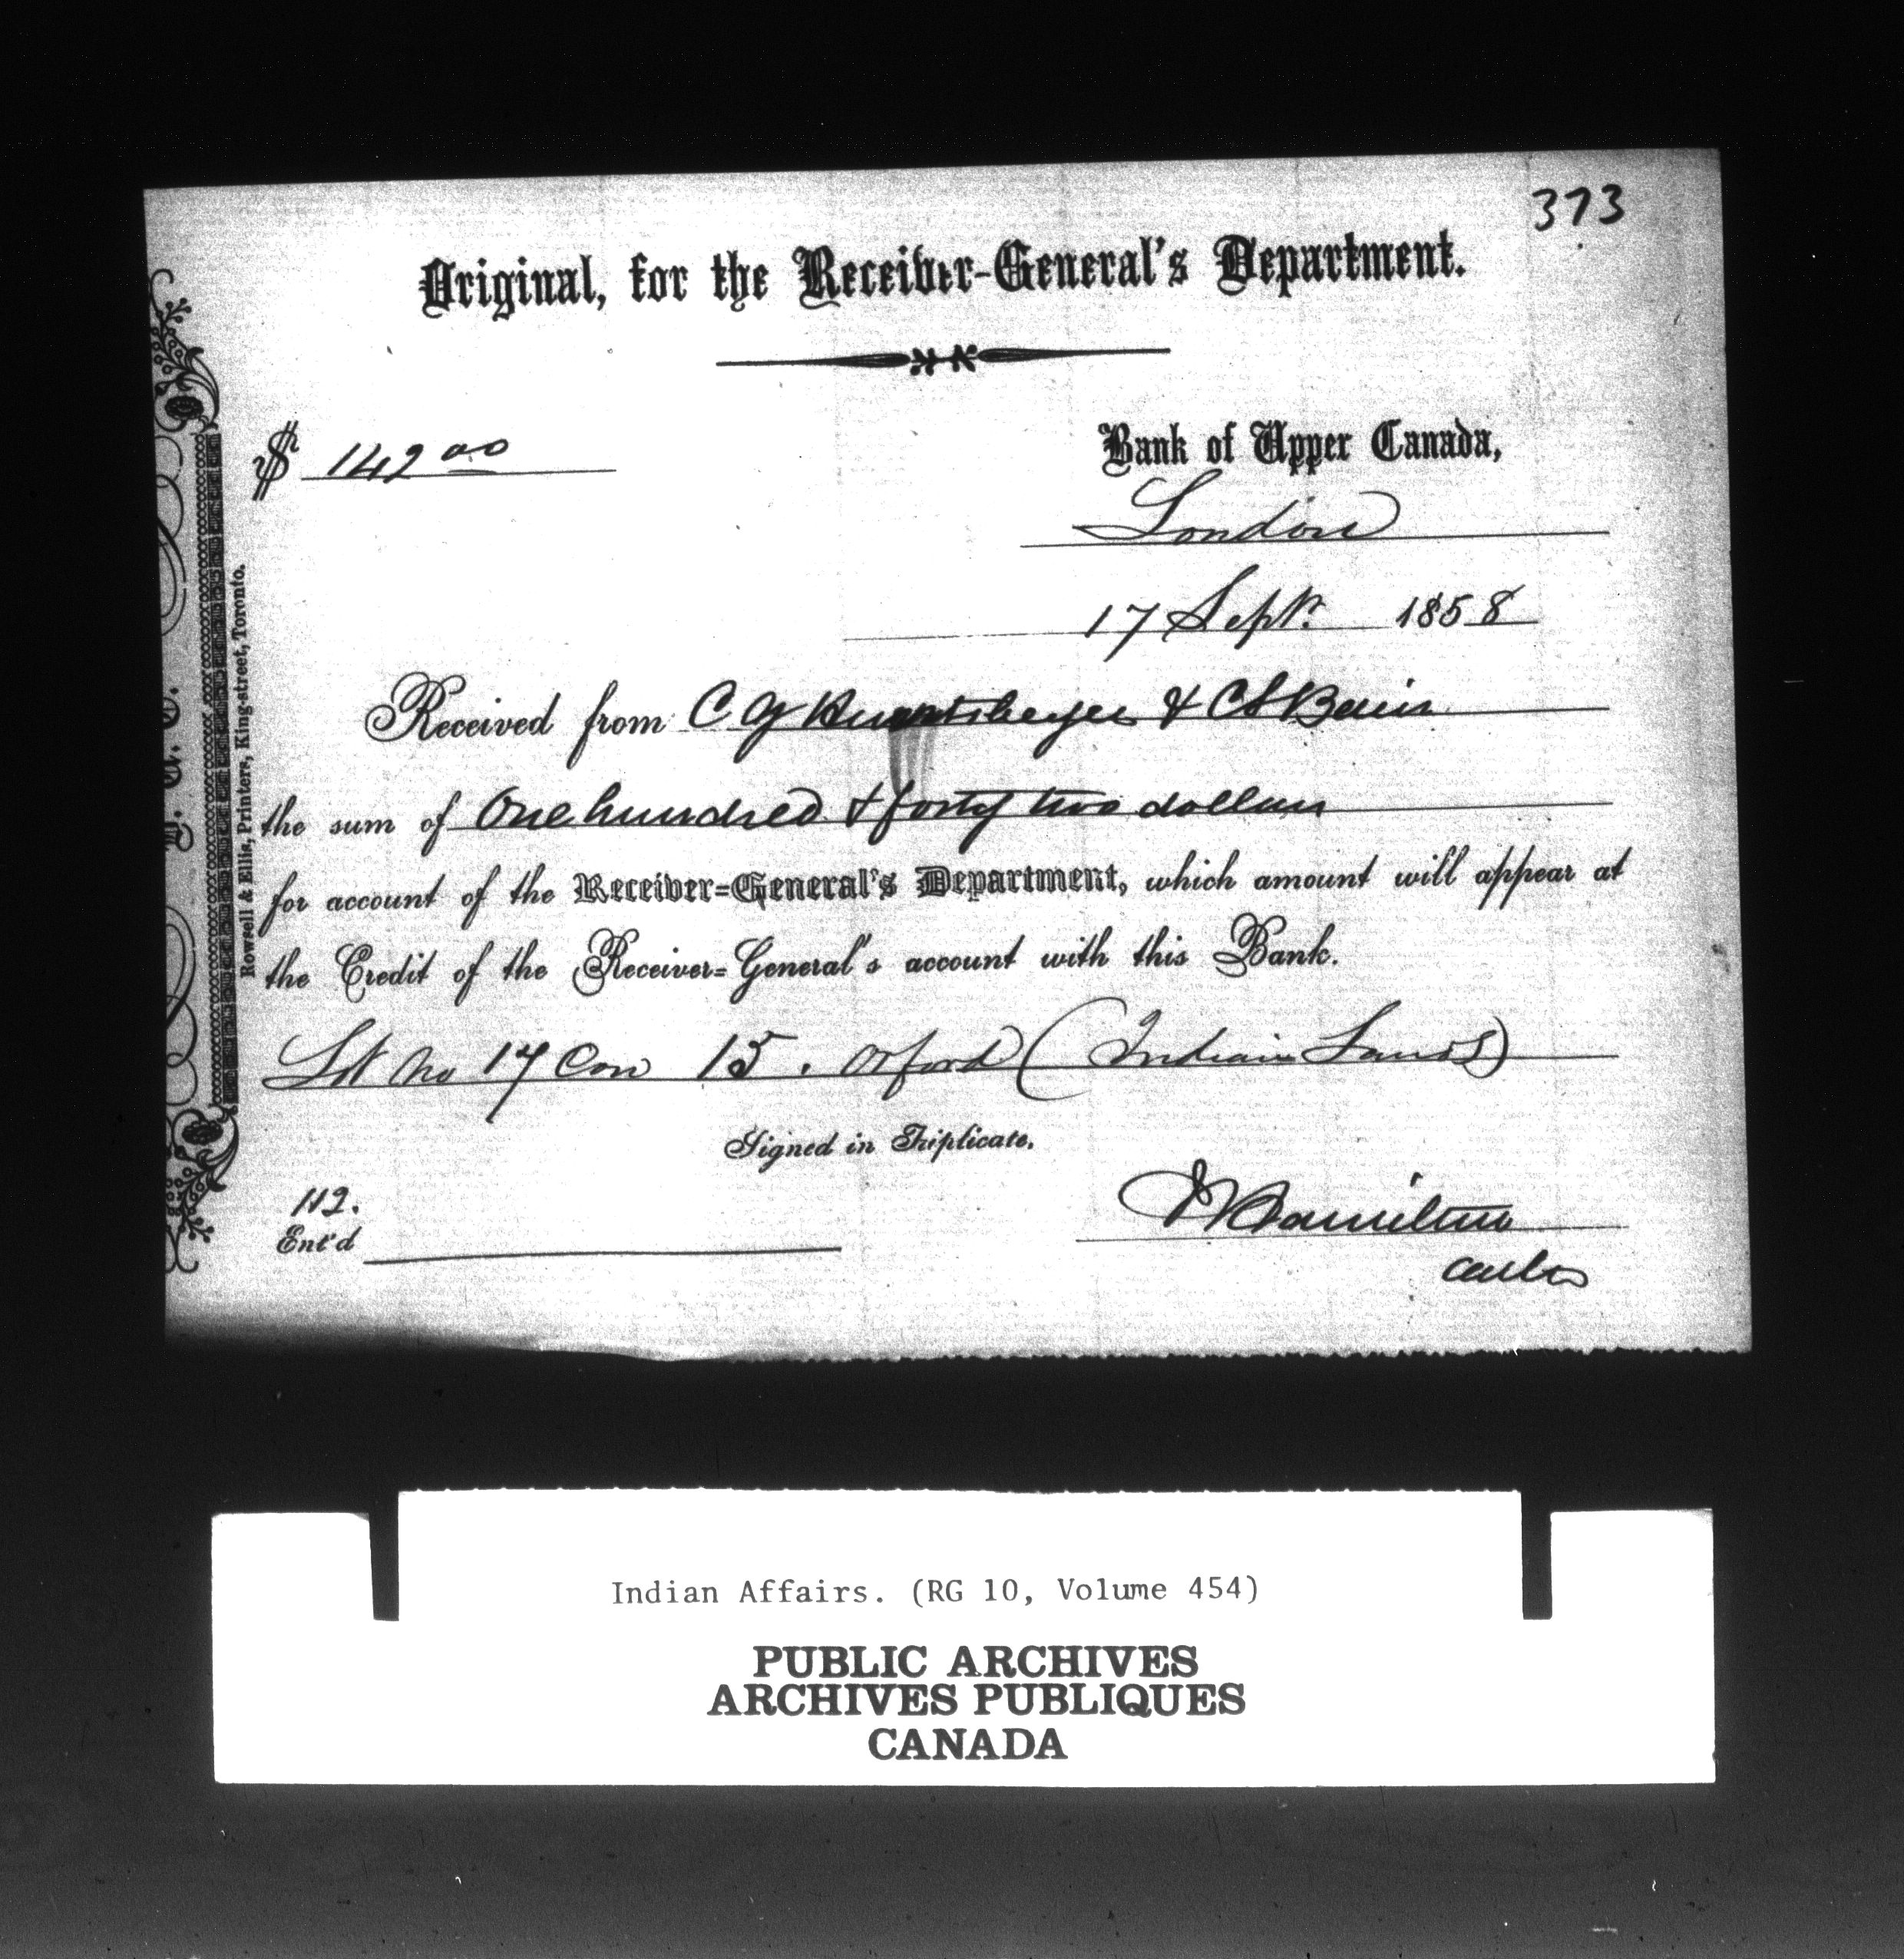 373
Original, for the Receiver-General's Department.
$ 142 00
Bank of Upper Canada,
London
17 Sept. 1858
Received from C G & C S
the sum of One hundred & forty two dollars
for account of the Receiver-General's Department, which amount will appear at
the Credit of the Receiver-General's account with this Bank.
Lot No 17 Con 15. Orford (Indian Lands)
Signed in Triplicate.
112.
Ent'd
Hamilton
Rowsell & Ellis, Printers, King-street, Toronto.
Indian Affairs. (RG 10, Volume 454)
PUBLIC ARCHIVES
ARCHIVES PUBLIQUES
CANADA